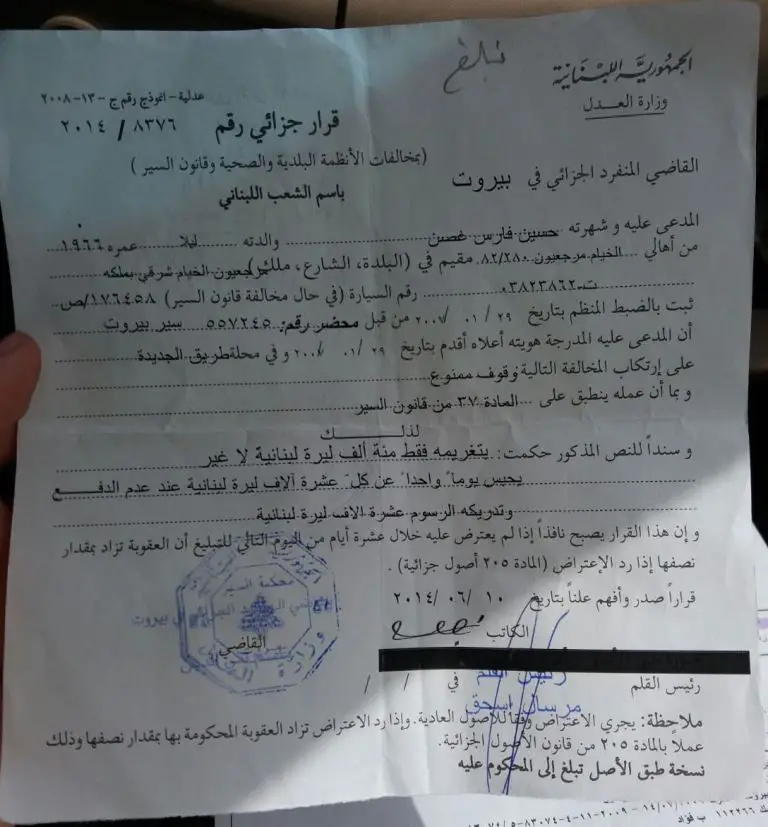 نبلغ
الجمهورية اللبنانية
وزارة العدل
عدلية - انموذج رقم ج - ١٣ - ٢٠٠٨
قرار جزائي رقم ٨٣٧٦ / ٢٠١٤
(بمخالفات الأنظمة البلدية والصحية وقانون السير)
القاضي المنفرد الجزائي في بيروت
باسم الشعب اللبناني
المدعى عليه و شهرته حسين فارس غصن والدته ليلا عمره ١٩٦٦
من أهالي الخيام مرجعيون ٨٢/٢٨٠ مقيم في (البلدة، الشارع، ملك) مرجعيون الخيام شرقي بملكه
ت ٠٣٨٢٣٨٦٢ رقم السيارة (في حال مخالفة قانون السير) ١٧٦٤٥٨/ص
ثبت بالضبط المنظم بتاريخ ٢٩ / ٠١ / من قبل محضر رقم: ٥٥٧٢٤٥ سير بيروت
أن المدعى عليه المدرجة هويته أعلاه أقدم بتاريخ ٢٩ / ٠١ / و في محلة طريق الجديدة
على إرتكاب المخالفة التالية وقوف ممنوع
و بما أن عمله ينطبق على المادة ٣٧ من قانون السير
لذلك
و سنداً للنص المذكور حكمت: بتغريمه فقط مئة ألف ليرة لبنانية لا غير
يحبس يوماً واحداً عن كل عشرة آلاف ليرة لبنانية عند عدم الدفع
وتدريكه الرسوم عشرة الاف ليرة لبنانية
و إن هذا القرار يصبح نافذاً إذا لم يعترض عليه خلال عشرة أيام من اليوم التالي للتبليغ أن العقوبة تزاد بمقدار
نصفها إذا رد الإعتراض (المادة ٢٠٥ أصول جزائية) .
قراراً صدر وأفهم علناً بتاريخ ١٠ / ٠٦ / ٢٠١٤
محكمة السير
الكاتب
القاضي
رئيس القلم
رئيس القلم في / /
مرسال اسحق
ملاحظة: يجري الاعتراض وفقاً للأصول العادية. وإذا رد الاعتراض تزاد العقوبة المحكومة بها بمقدار نصفها وذلك
عملاً بالمادة ٢٠٥ من قانون الأصول الجزائية.
نسخة طبق الأصل تبلغ إلى المحكوم عليه